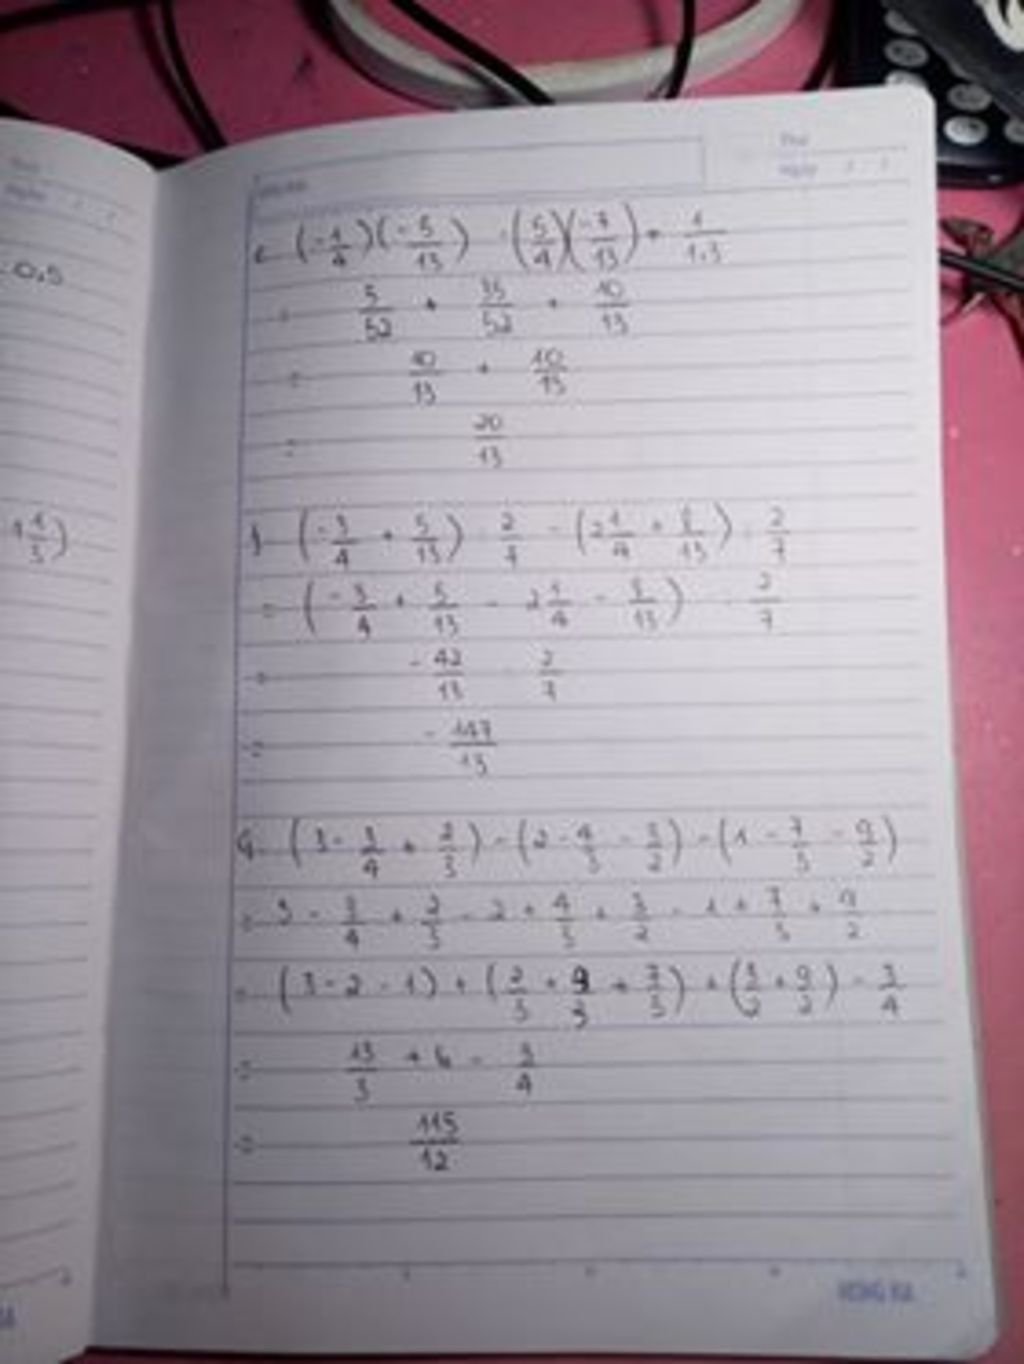 : 0,5
1 1/3)
Thứ
Ngày
e. (-1/4)(-5/13) - (5/4)(-7/13) + 1/1,3
= 5/52 + 35/52 + 10/13
= 10/13 + 10/13
= 20/13
f. (-3/4 + 5/13) : 2/7 - (2 1/4 + 8/13) : 2/7
= (-3/4 + 5/13 - 2 1/4 - 8/13) : 2/7
= -42/13 : 2/7
= -147/13
g. (3 - 3/4 + 2/3) - (2 - 4/3 - 3/2) - (1 - 7/3 - 9/2)
= 3 - 3/4 + 2/3 - 2 + 4/3 + 3/2 - 1 + 7/3 + 9/2
= (3 - 2 - 1) + (2/3 + 4/3 + 7/3) + (3/2 + 9/2) - 3/4
= 13/3 + 6 - 3/4
= 115/12
HỒNG HÀ